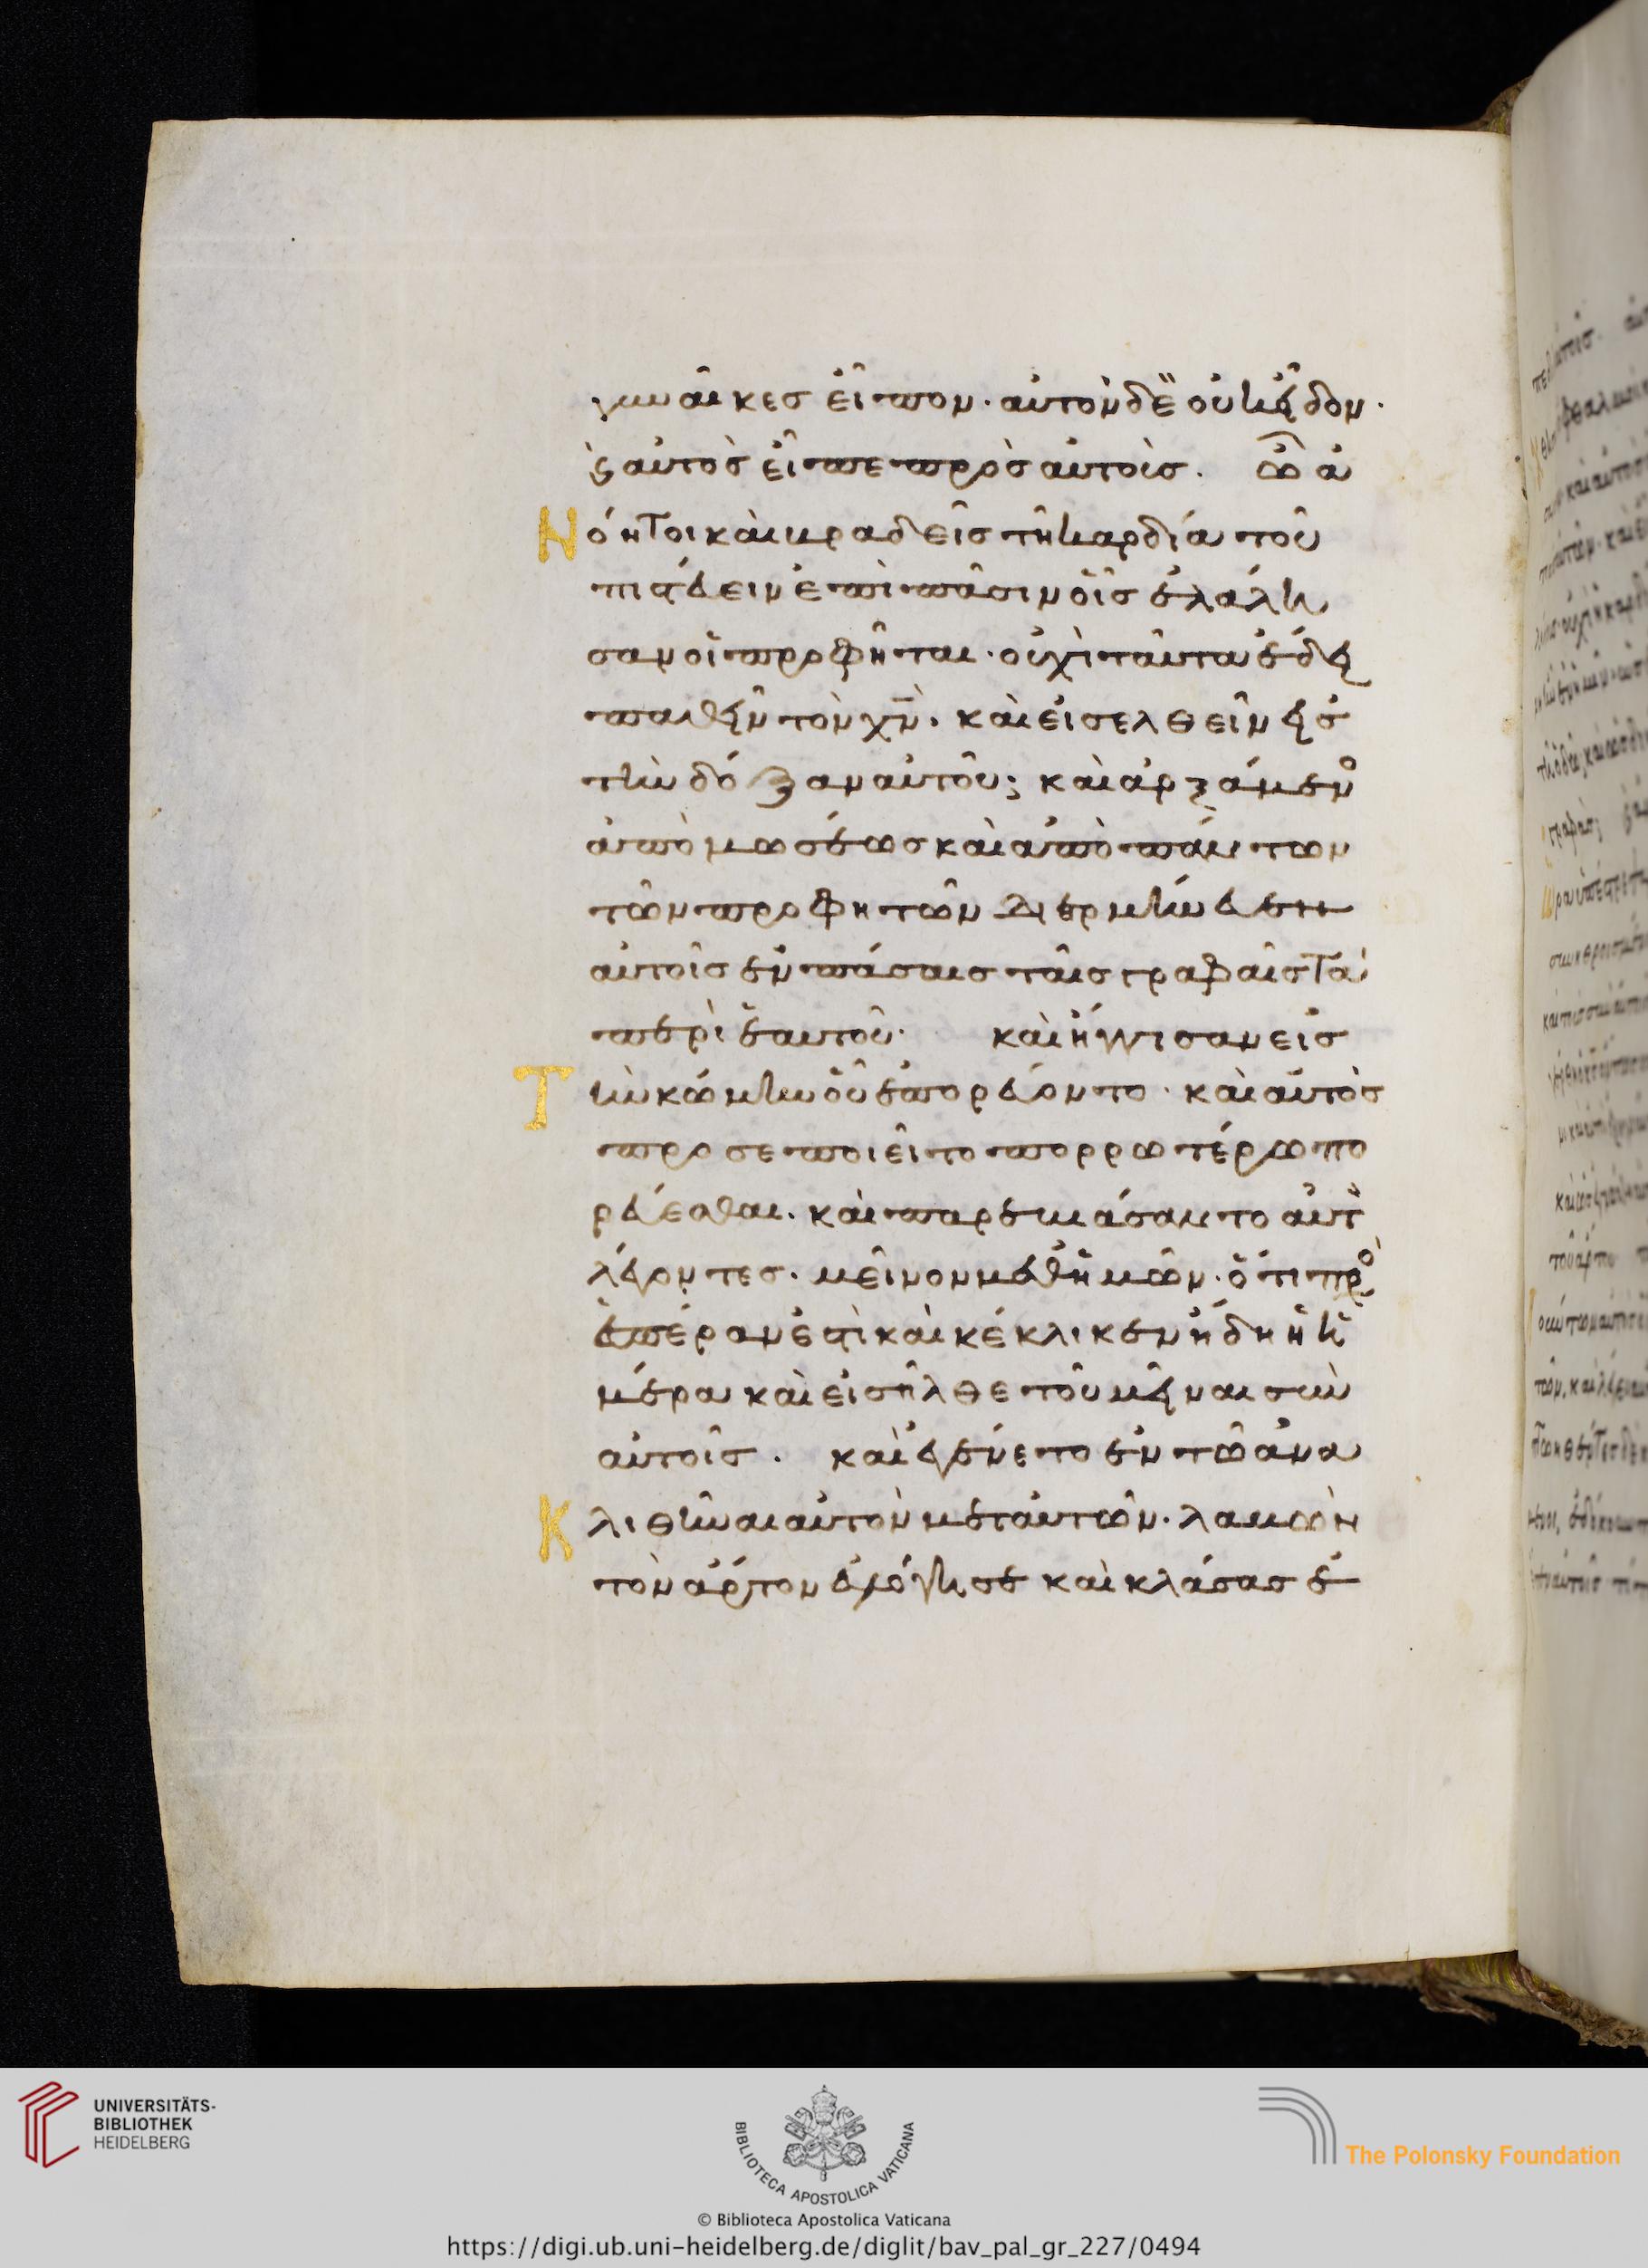 γυναῖκες εἶπον· αὐτὸν δὲ οὐκ εἶδον·
ϛ αὐτὸς εἶπε πρὸς αὐτοὺς. ὦ ἀ
Νόητοι καὶ βραδεῖς τῆ καρδία τοῦ
πιστεύειν ἐπὶ πᾶσιν οἷς ἐλάλη
σαν οἱ προφῆται· οὐχὶ ταῦτα ἔδει
παθεῖν τὸν χν̅· καὶ εἰσελθεῖν εἰς
τὴν δόξαν αὐτοῦ; καὶ ἀρξάμενο
ἀπὸ μωσέως καὶ ἀπὸ πάντων
τῶν προφητῶν διερμήνευεν
αὐτοῖς ἐν πάσαις ταῖς γραφαῖς τὰ
περὶ ἑαυτοῦ· καὶ ἤγγισαν εἰς
Τὴν κώμην οὗ ἐπορεύοντο· καὶ αὐτὸς
προσεποιεῖτο πορρωτέρω πο
ρεύεσθαι· καὶ παρεβιάσαντο αὐτ
λέγοντες· μεῖνον μεθ' ἡμῶν· ὅτι πρ
ἑσπέραν ἐστὶ καὶ κέκλικεν ἤδη ἡ ἡ
μέρα καὶ εἰσῆλθε τοῦ μεῖναι σὺν
αὐτοῖς. καὶ ἐγένετο ἐν τῶ ἀνα
Κλιθῆναι αὐτὸν μετ' αὐτῶν· λαβὼν
τὸν ἄρτον εὐλόγησε καὶ κλάσας ἐ
UNIVERSITÄTS-
BIBLIOTHEK
HEIDELBERG
BIBLIOTECA APOSTOLICA VATICANA
The Polonsky Foundation
© Biblioteca Apostolica Vaticana
https://digi.ub.uni-heidelberg.de/diglit/bav_pal_gr_227/0494